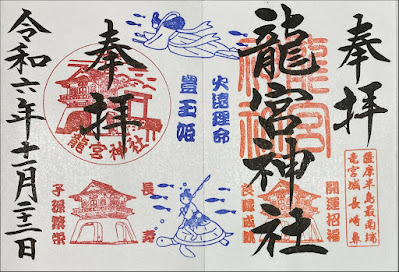 奉拝
薩摩半島最南端
竜宮城 長崎鼻
龍宮神社
龍宮
神社
開運招福
良縁成就
火遠理命
豊玉姫
奉拝
龍宮神社
長寿
子孫繁栄
令和六年十一月二十三日